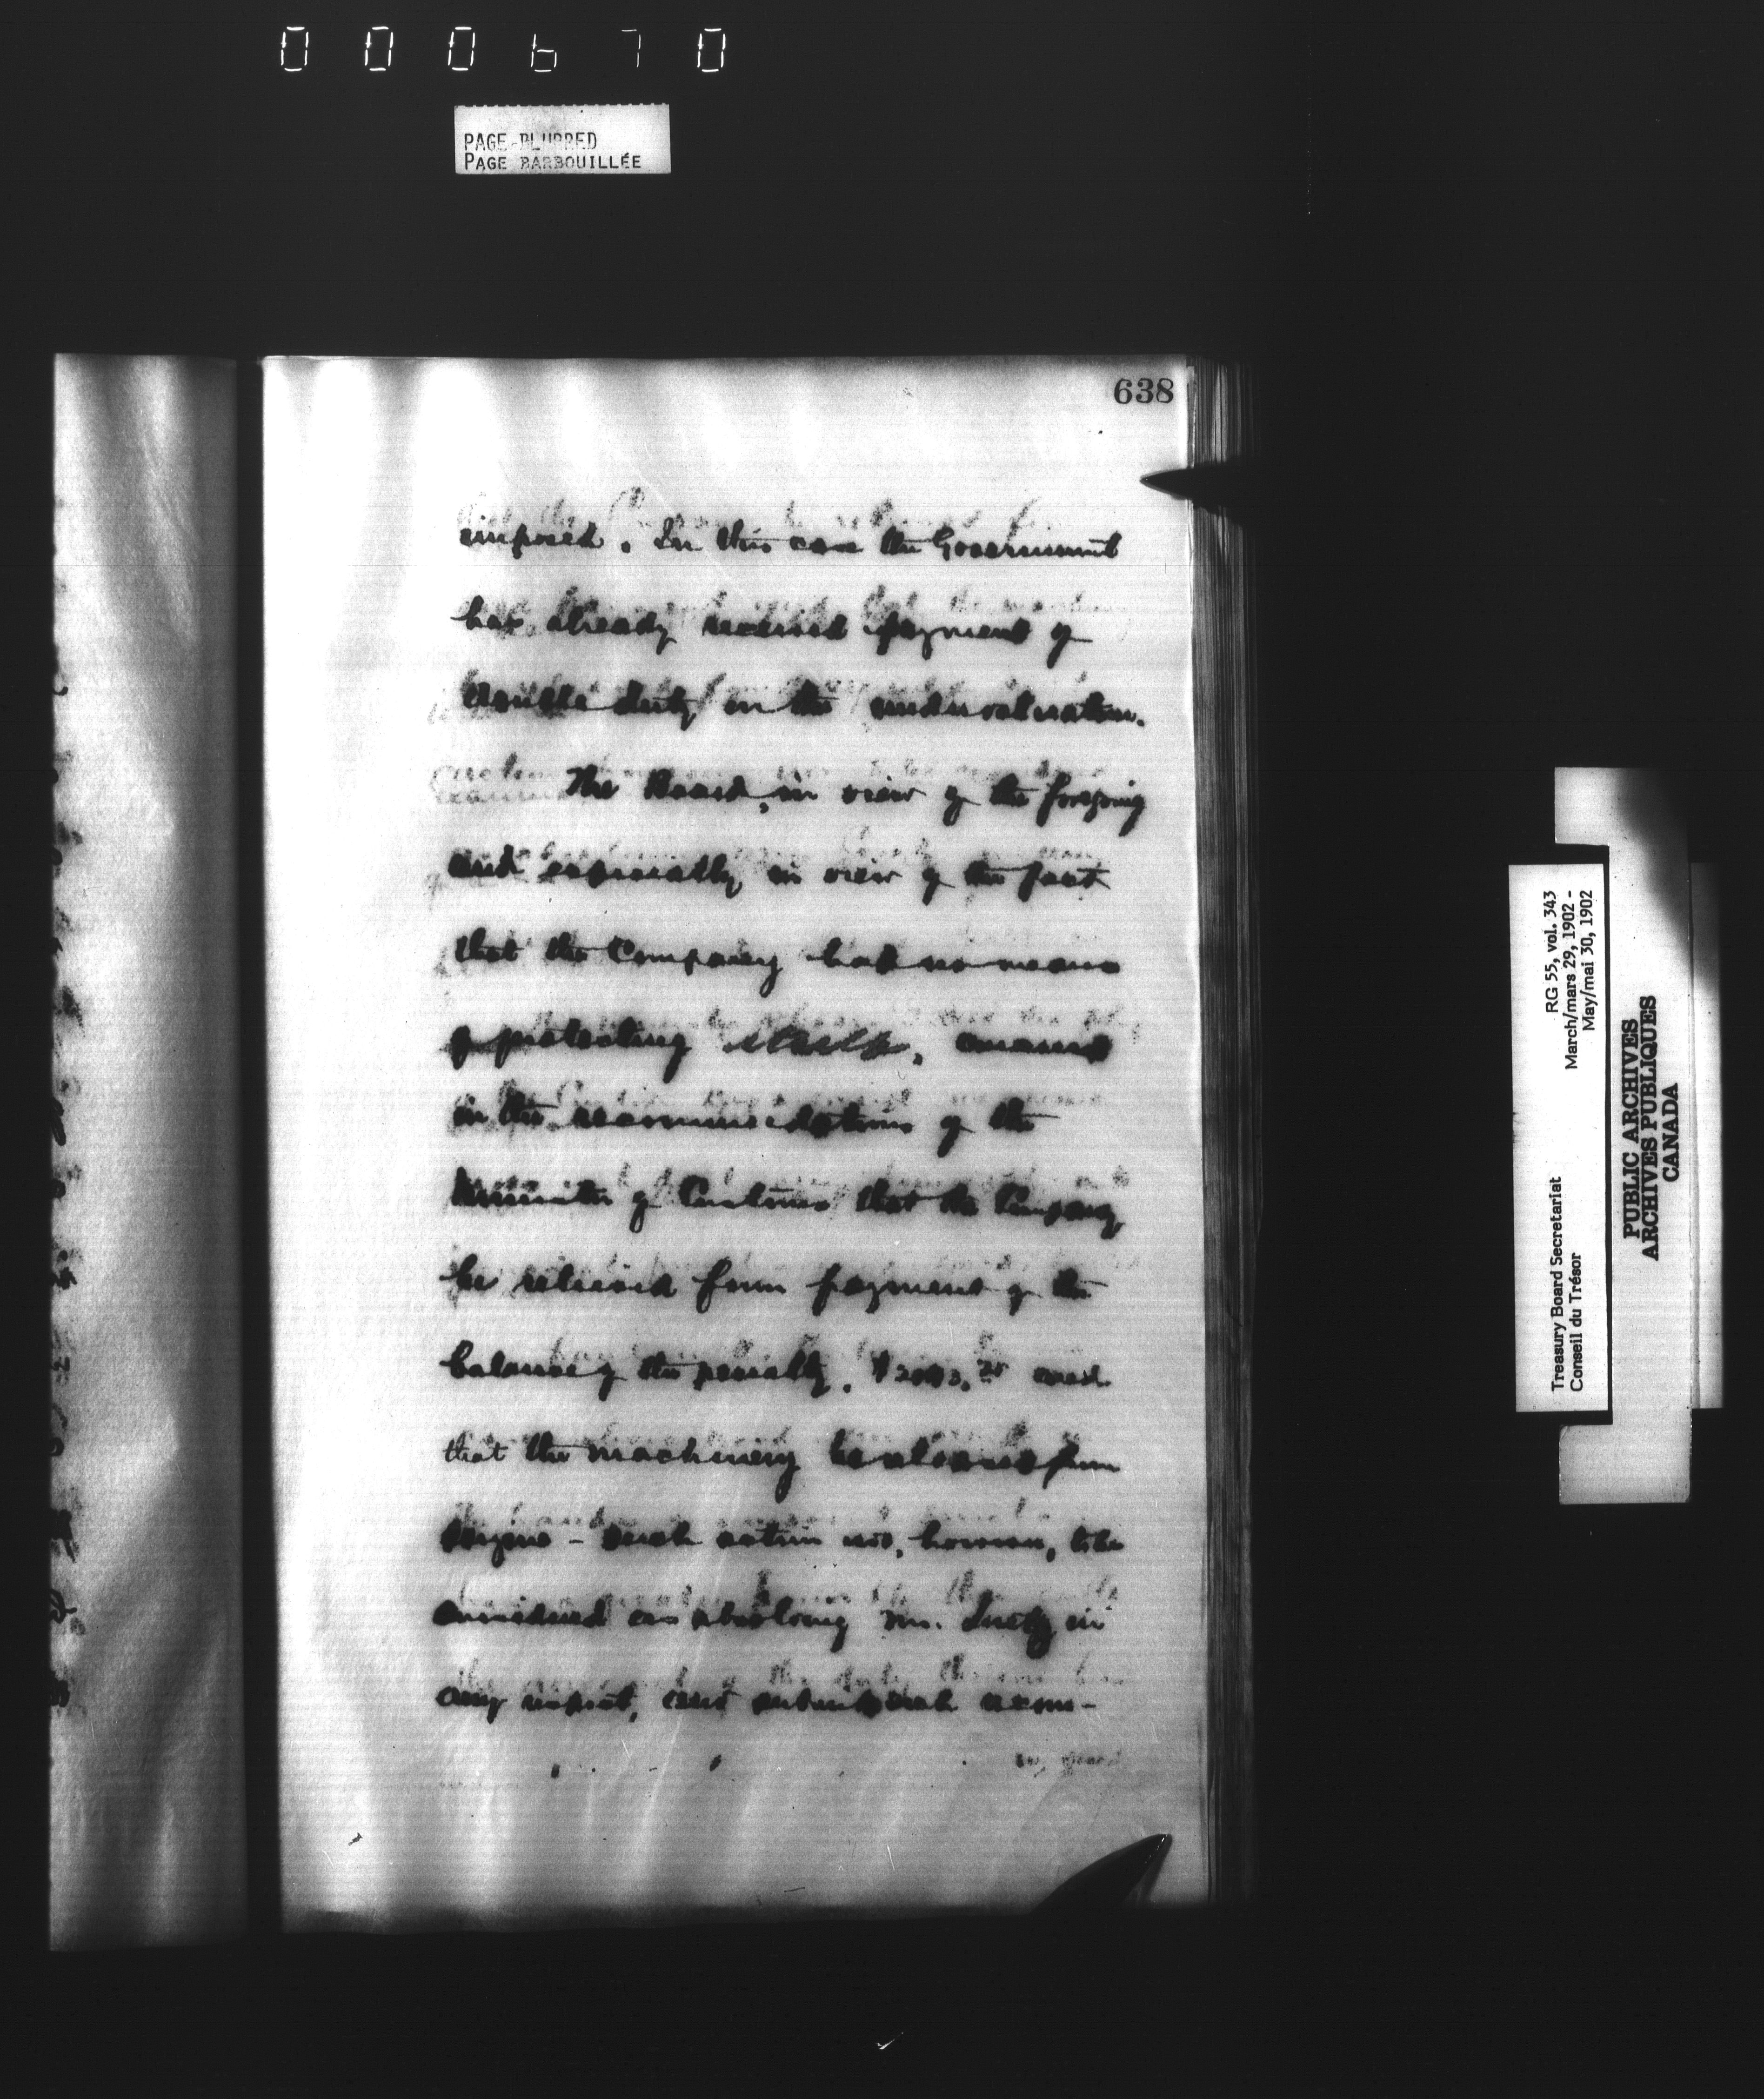 000670
PAGE BLURRED
PAGE BARBOUILLÉE
638
imposed. In this case the Government
has already received payment of
double duty on the undervaluation.
The Board, in view of the foregoing
and especially in view of the fact
that the Company has no means
of protecting itself, concurs
in the recommendations of the
Minister of Customs that the Company
be relieved from payment of the
balance of the penalty, and
that the machinery be released from
seizure - such action not, however, to be
considered as absolving Mr. in
any respect, and
RG 55, vol. 343
March/mars 29, 1902 -
May/mai 30, 1902
Treasury Board Secretariat
Conseil du Trésor
PUBLIC ARCHIVES
ARCHIVES PUBLIQUES
CANADA